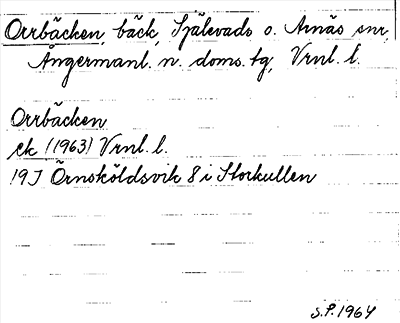 Orrbäcken, bäck, Själevads o. Arnäs snr,
Ångermanl. n. doms. tg, Vrnl. l.
Orrbäcken
ek (1963) Vrnl. l.
19J Örnsköldsvik 8 i Storkullen
S.P. 1964